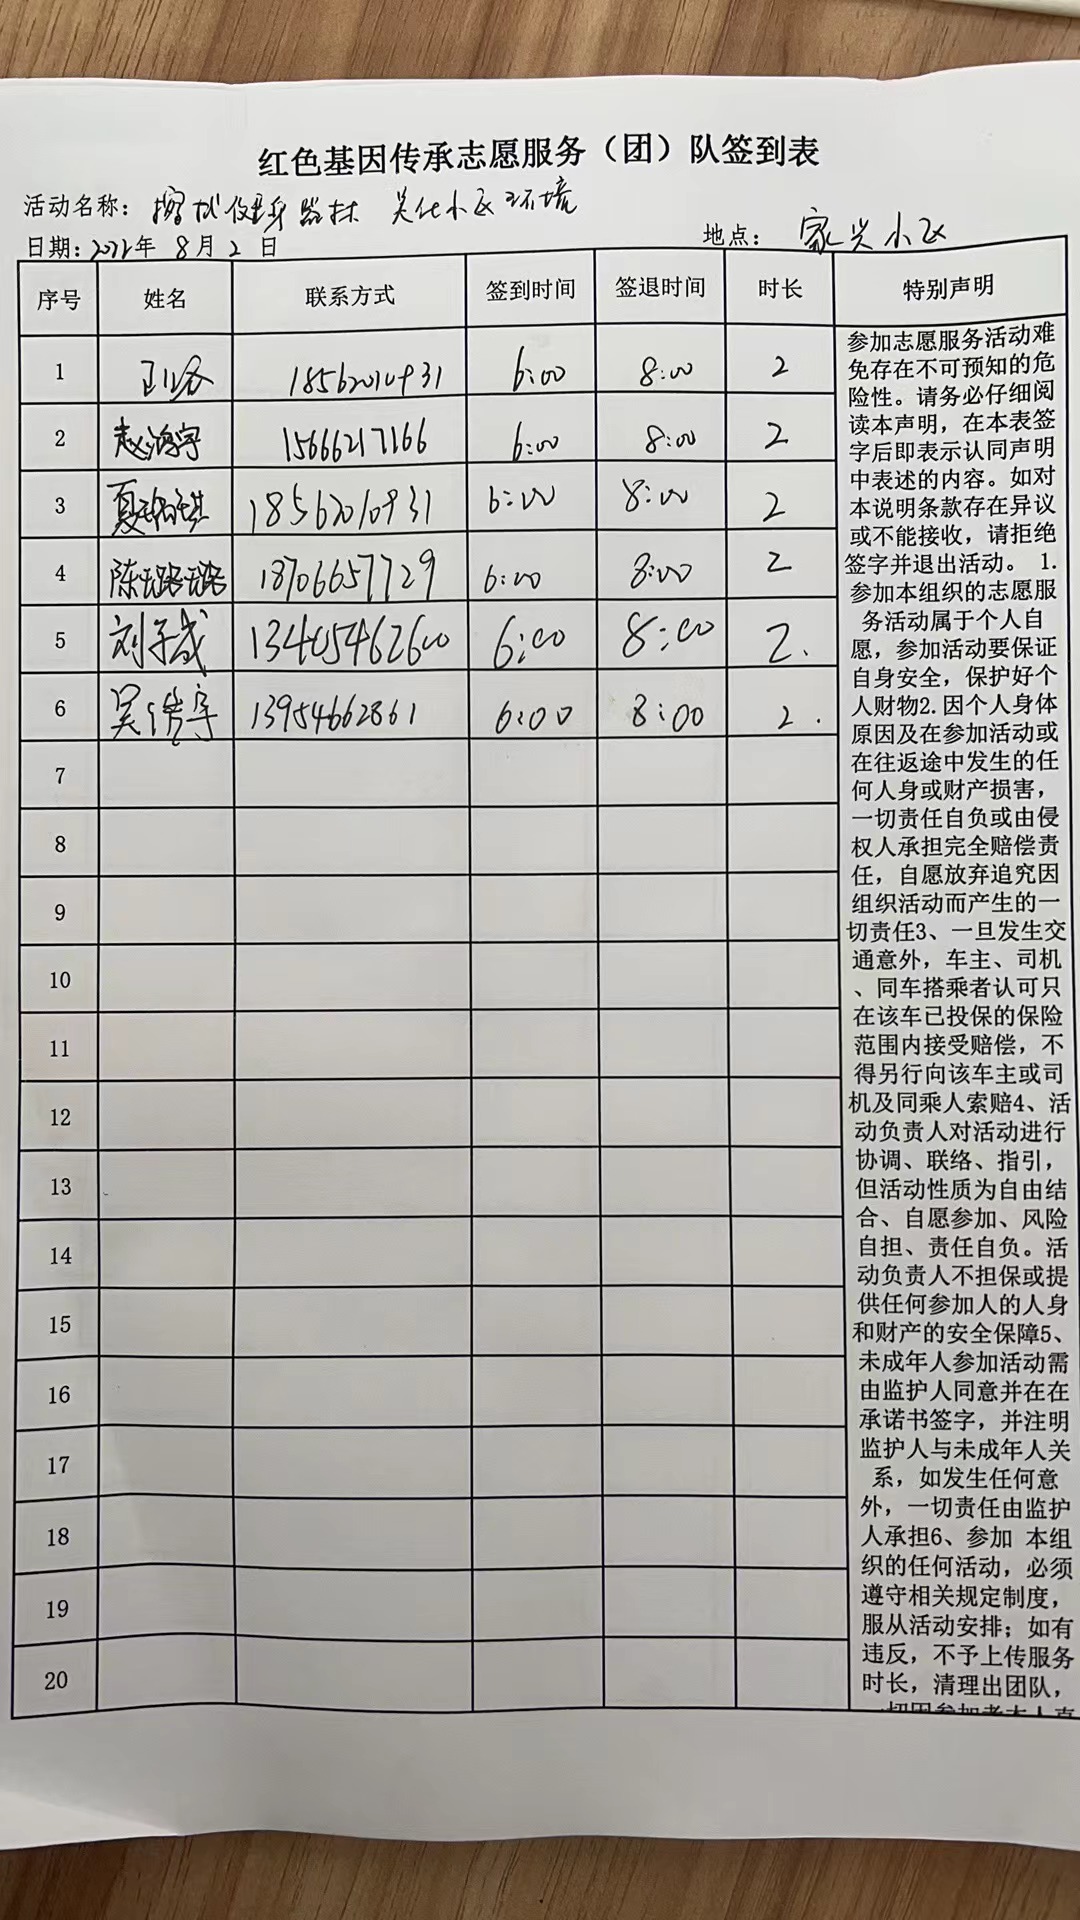 红色基因传承志愿服务（团）队签到表
活动名称：擦拭健身器材 美化小区环境
日期：2022年 8月 2 日 地点：家兴小区
序号 姓名 联系方式 签到时间 签退时间 时长 特别声明
1 18562010931 6:00 8:00 2
2 赵鸿宇 15666217166 6:00 8:00 2
3 18562010931 6:00 8:00 2
4 陈璐璐 18706657729 6:00 8:00 2
5 刘子成 13405462600 6:00 8:00 2.
6 吴浩宇 13954662861 6:00 8:00 2.
7
8
9
10
11
12
13
14
15
16
17
18
19
20
参加志愿服务活动难
免存在不可预知的危
险性。请务必仔细阅
读本声明，在本表签
字后即表示认同声明
中表述的内容。如对
本说明条款存在异议
或不能接收，请拒绝
签字并退出活动。 1.
参加本组织的志愿服
务活动属于个人自
愿，参加活动要保证
自身安全，保护好个
人财物2.因个人身体
原因及在参加活动或
在往返途中发生的任
何人身或财产损害，
一切责任自负或由侵
权人承担完全赔偿责
任，自愿放弃追究因
组织活动而产生的一
切责任3、一旦发生交
通意外，车主、司机
、同车搭乘者认可只
在该车已投保的保险
范围内接受赔偿，不
得另行向该车主或司
机及同乘人索赔4、活
动负责人对活动进行
协调、联络、指引，
但活动性质为自由结
合、自愿参加、风险
自担、责任自负。活
动负责人不担保或提
供任何参加人的人身
和财产的安全保障5、
未成年人参加活动需
由监护人同意并在在
承诺书签字，并注明
监护人与未成年人关
系，如发生任何意
外，一切责任由监护
人承担6、参加 本组
织的任何活动，必须
遵守相关规定制度，
服从活动安排；如有
违反，不予上传服务
时长，清理出团队，